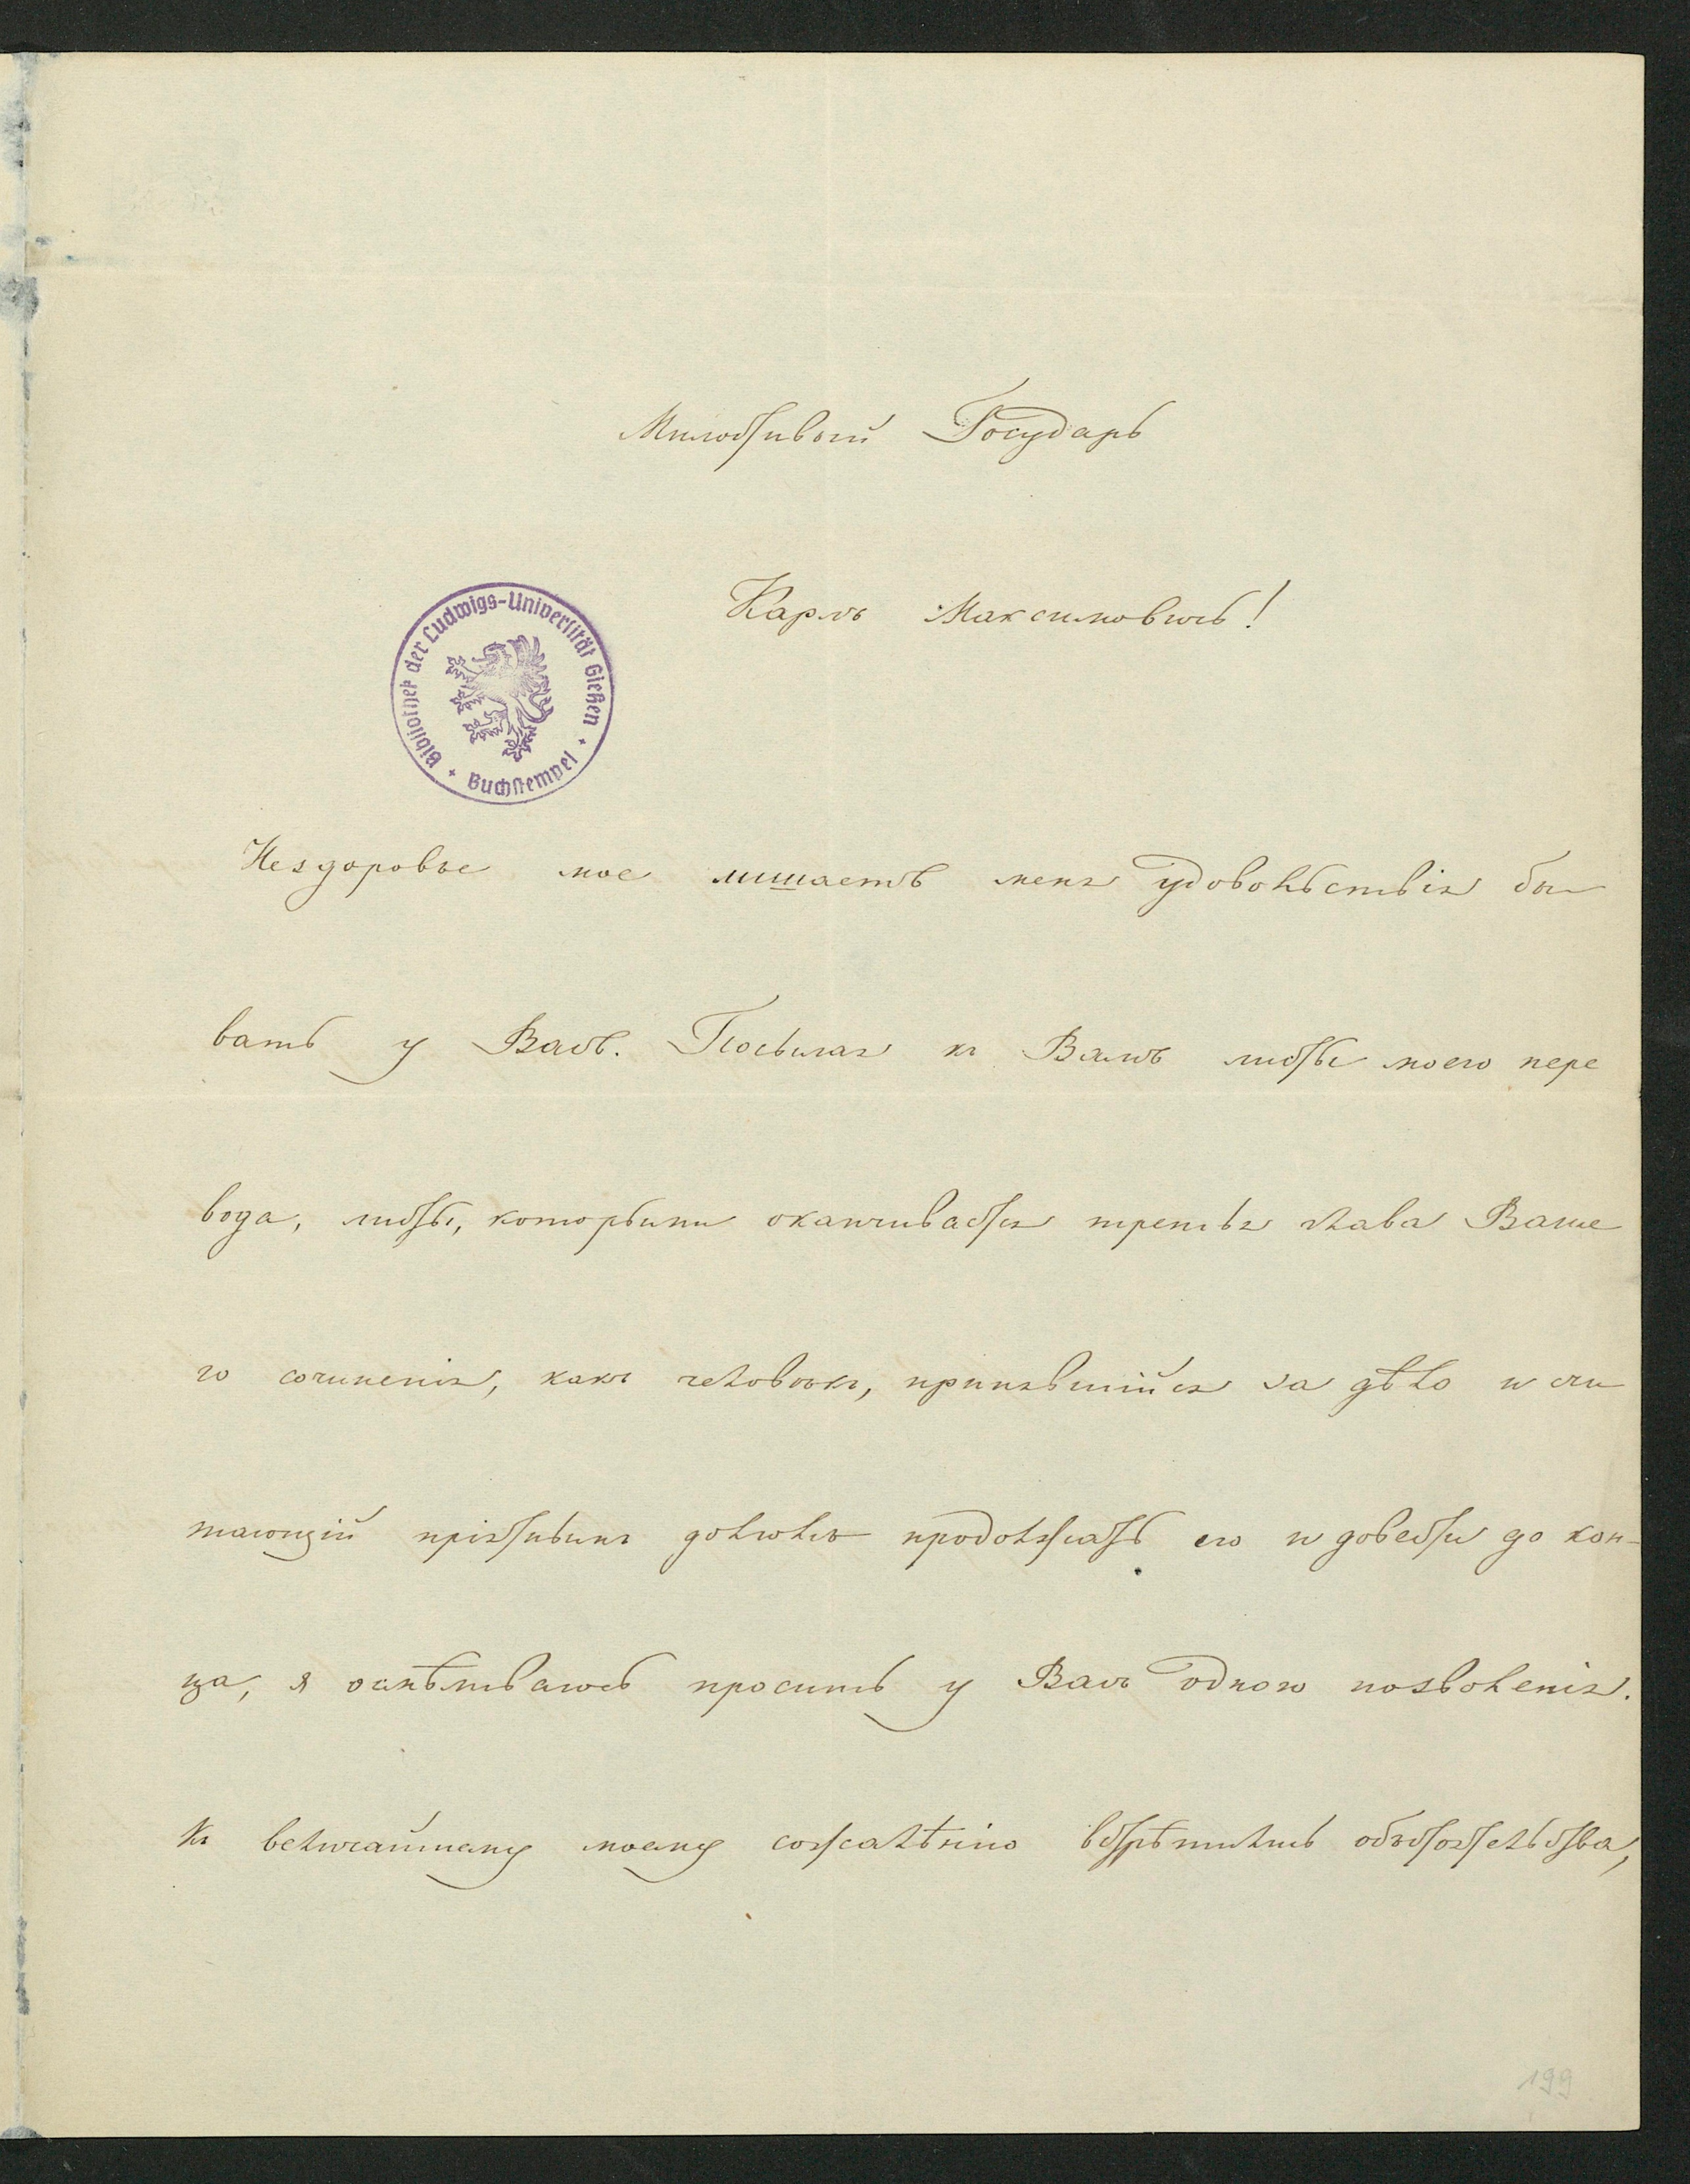 Милостивый Государь
Карлъ Максимовичь!
Bibliothek der Ludwigs-Universität Gießen
Buchstempel
Нездоровье мое лишаетъ меня удовольствія бы
вать у Васъ. Посылая къ Вамъ листы моего пере
вода, листы, которыми оканчивается третья глава Ваше
го сочиненія, какъ человѣкъ, принявшійся за дѣло и счи
тающій пріятнымъ долгомъ продолжать его и довести до кон-
ца, я осмѣливаюсь просить у Васъ одного позволенія.
Къ величайшему моему сожалѣнію встрѣтились обстоятельства,
199